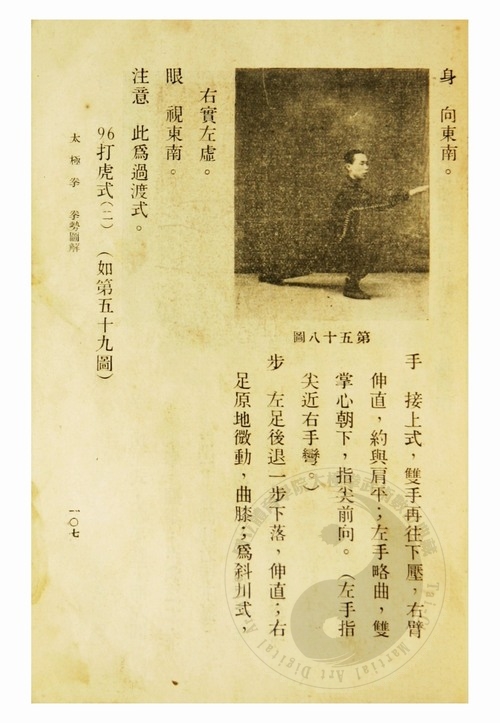 第五十八圖
手　接上式，雙手再往下壓，右臂
伸直，約與肩平；左手略曲，雙
掌心朝下，指尖前向。（左手指
尖近右手彎。）
步　左足後退一步下落，伸直；右
足原地微動，曲膝；爲斜川式，
身　向東南。
右實左虛。
眼　視東南。
注意　此爲過渡式。
96打虎式（二）　（如第五十九圖）
太極拳　拳勢圖解
一〇七
Martial Art Digital